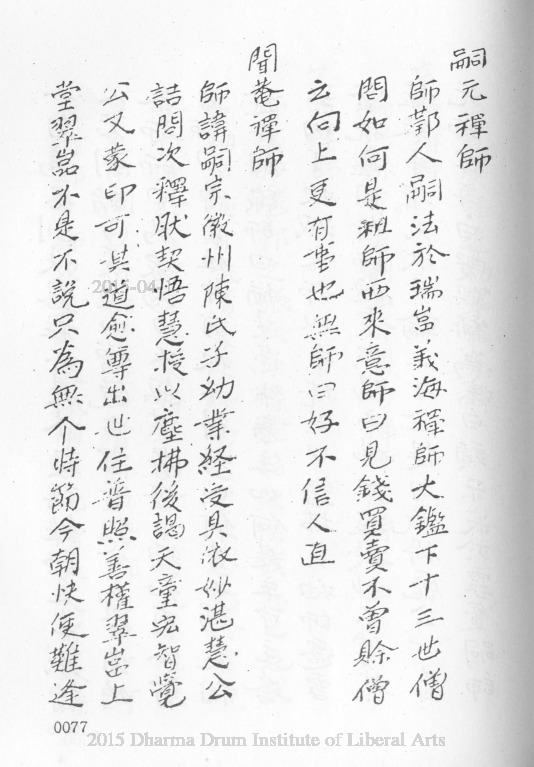 嗣元禪師
師鄞人嗣法於瑞岩義海禪師大鑑下十三世僧
問如何是祖師西來意師曰見錢買賣不曾賒僧
云向上更有事也無師曰好不信人直
聞菴禪師
師諱嗣宗徽州陳氏子幼業経受具依妙湛慧公
詰問次釋肰契悟慧授以麈拂後謁天童宏智覺
公又蒙印可其道愈尊出世住普照善權翠岩上
堂翠岩不是不說只為無个時節今朝快便難逢
0077
2015 Dharma Drum Institute of Liberal Arts